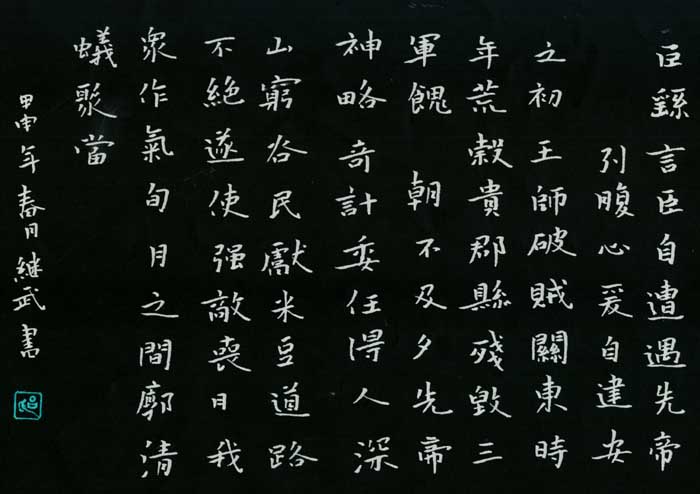 臣繇言臣自遭遇先帝
列腹心爰自建安
之初王師破賊關東時
年荒穀貴郡縣殘毀三
軍餽朝不及夕先帝
神略奇計委任得人深
山窮谷民獻米豆道路
不絕遂使强敵喪日我
眾作氣旬月之間廓清
蟻聚當
甲申年春月継武書